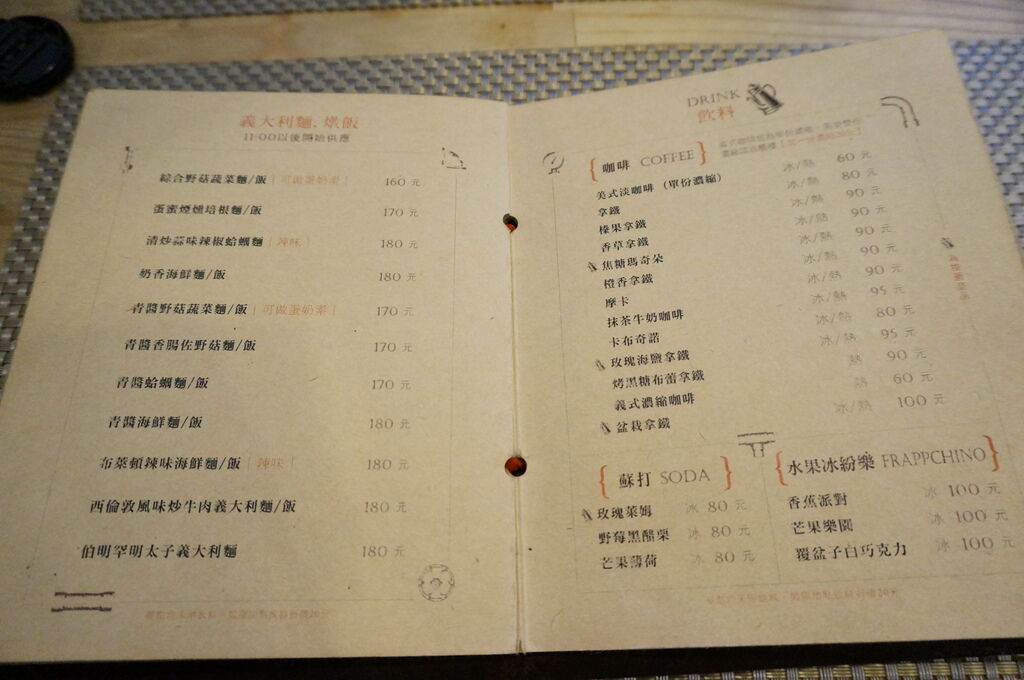 義大利麵、燉飯
11:00以後開始供應
綜合野菇蔬菜麵/飯 | 可做蛋奶素 | 160 元
蛋蜜煙燻培根麵/飯 170 元
清炒蒜味辣椒蛤蠣麵 | 辣味 | 180 元
奶香海鮮麵/飯 180 元
青醬野菇蔬菜麵/飯 | 可做蛋奶素 | 170 元
青醬香腸佐野菇麵/飯 170 元
青醬蛤蠣麵/飯 170 元
青醬海鮮麵/飯 180 元
布萊頓辣味海鮮麵/飯 | 辣味 | 180 元
西倫敦風味炒牛肉義大利麵/飯 180 元
伯明罕明太子義大利麵 180 元
DRINK
飲料
咖啡 COFFEE
美式淡咖啡 (單份濃縮) 冰/熱 60 元
拿鐵 冰/熱 80 元
榛果拿鐵 冰/熱 90 元
香草拿鐵 冰/熱 90 元
焦糖瑪奇朵 冰/熱 90 元
橙香拿鐵 冰/熱 90 元
摩卡 冰/熱 90 元
抹茶牛奶咖啡 冰/熱 95 元
卡布奇諾 冰/熱 80 元
玫瑰海鹽拿鐵 冰/熱 95 元
烤黑糖布蕾拿鐵 熱 90 元
義式濃縮咖啡 熱 60 元
盆栽拿鐵 冰/熱 100 元
蘇打 SODA
玫瑰萊姆 冰 80 元
野莓黑醋栗 冰 80 元
芒果薄荷 冰 80 元
水果冰紛樂 FRAPPCHINO
香蕉派對 冰 100 元
芒果樂園 冰 100 元
覆盆子白巧克力 冰 100 元